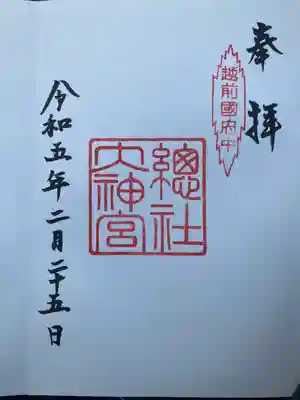 奉拝
越前國府中
總社
大神宮
令和五年二月二十五日